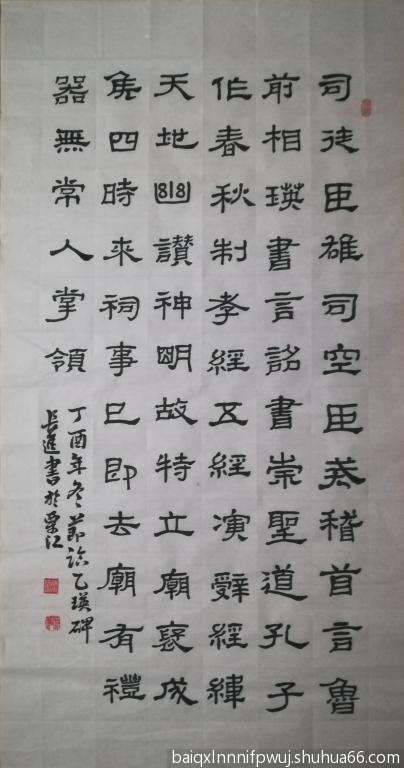 司徒臣雄司空臣戒稽首言魯
前相瑛書言詔書崇聖道孔子
作春秋制孝經五經演辭經緯
天地幽讚神明故特立廟褒成
侯四時來祠事已即去廟有禮
器無常人掌領
丁酉年冬節臨乙瑛碑
長進書於江
baiqxlnnnifpwuj.shuhua66.com